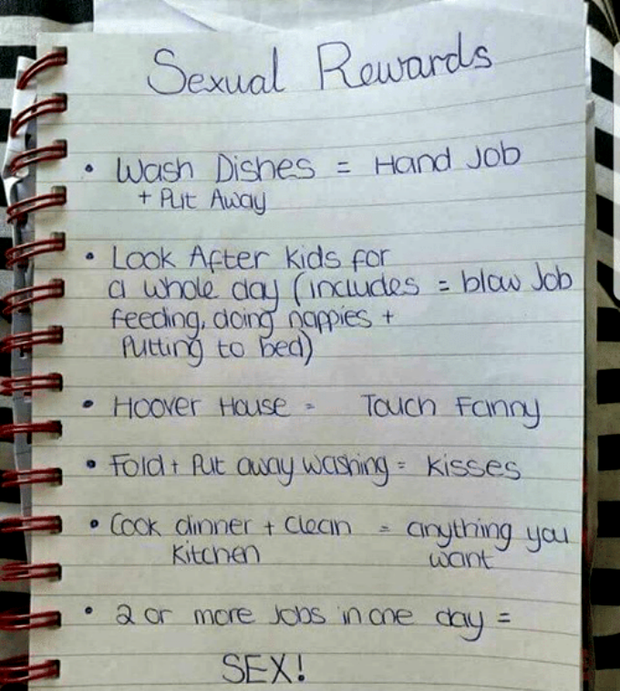 Sexual Rewards
• Wash Dishes = Hand Job
+ Put Away
• Look After kids for
a whole day (includes = blow Job
feeding, doing nappies +
Putting to bed)
• Hoover House = Touch Fanny
• Fold + Put away washing = kisses
• Cook dinner + clean = anything you
kitchen want
• 2 or more Jobs in one day =
SEX!